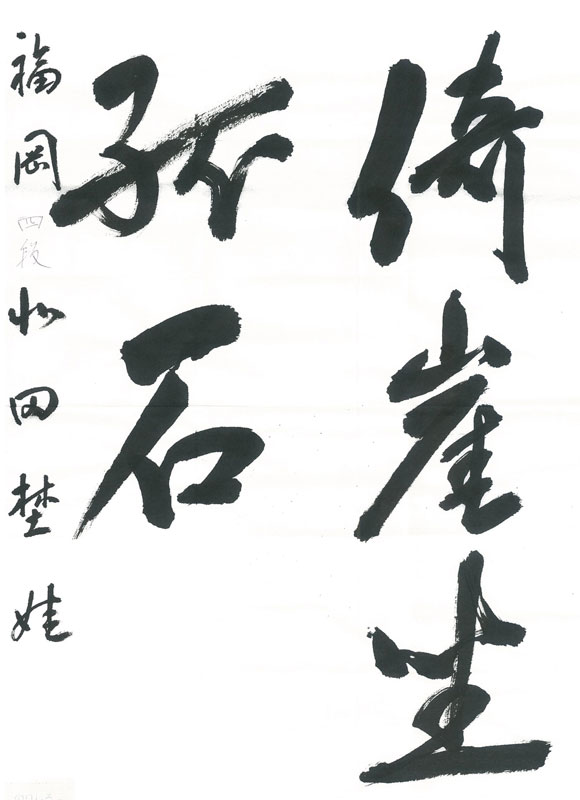 倚崖坐
孤石
福岡 四段 田埜娃